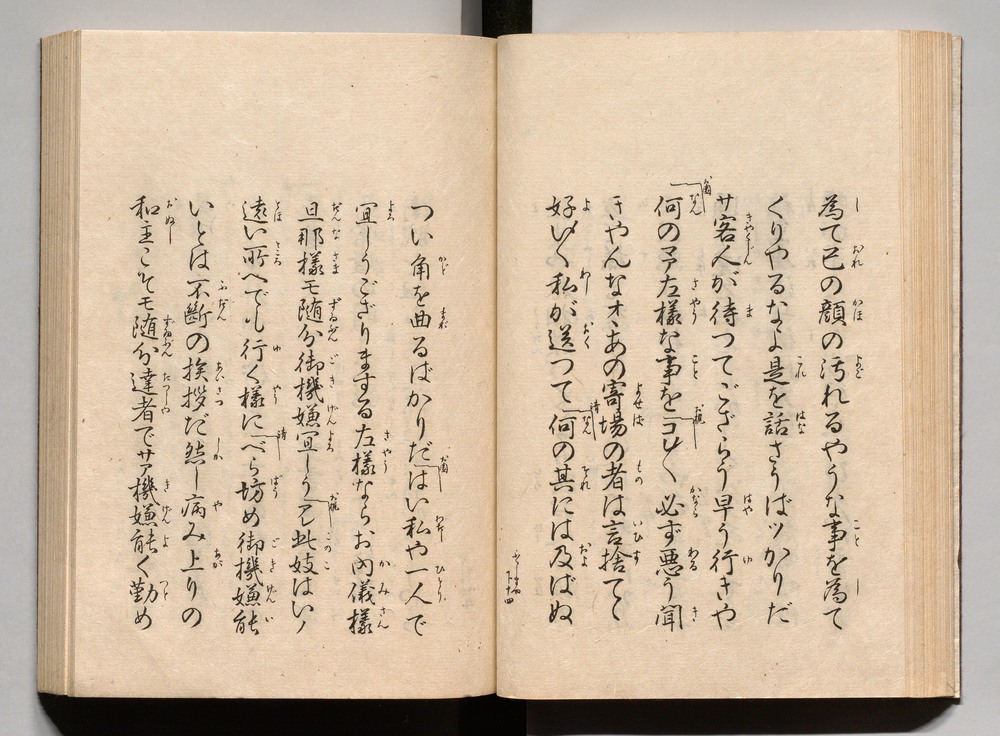 為て己の顔の汚れるやうな事を為て
くりやるなよ是を話さうばッかりだ
サ客人が待つてござらう早う行きや
何のマア左樣な事をコレ〱必ず悪う聞
きやんなオヽあの寄場の者は言捨てゝ
好い〱私が送つて何の其には及ばぬ
つい角を曲るばかりだはい私や一人で
宜しうござりまする左樣ならお内儀樣
旦那樣モ随分御機嫌宜しうアレ此妓はいノ
遠い所へでも行く樣にべら坊め御機嫌能
いとは不斷の挨拶だ然し病み上りの
和主こそモ随分達者でサア機嫌能く勤め